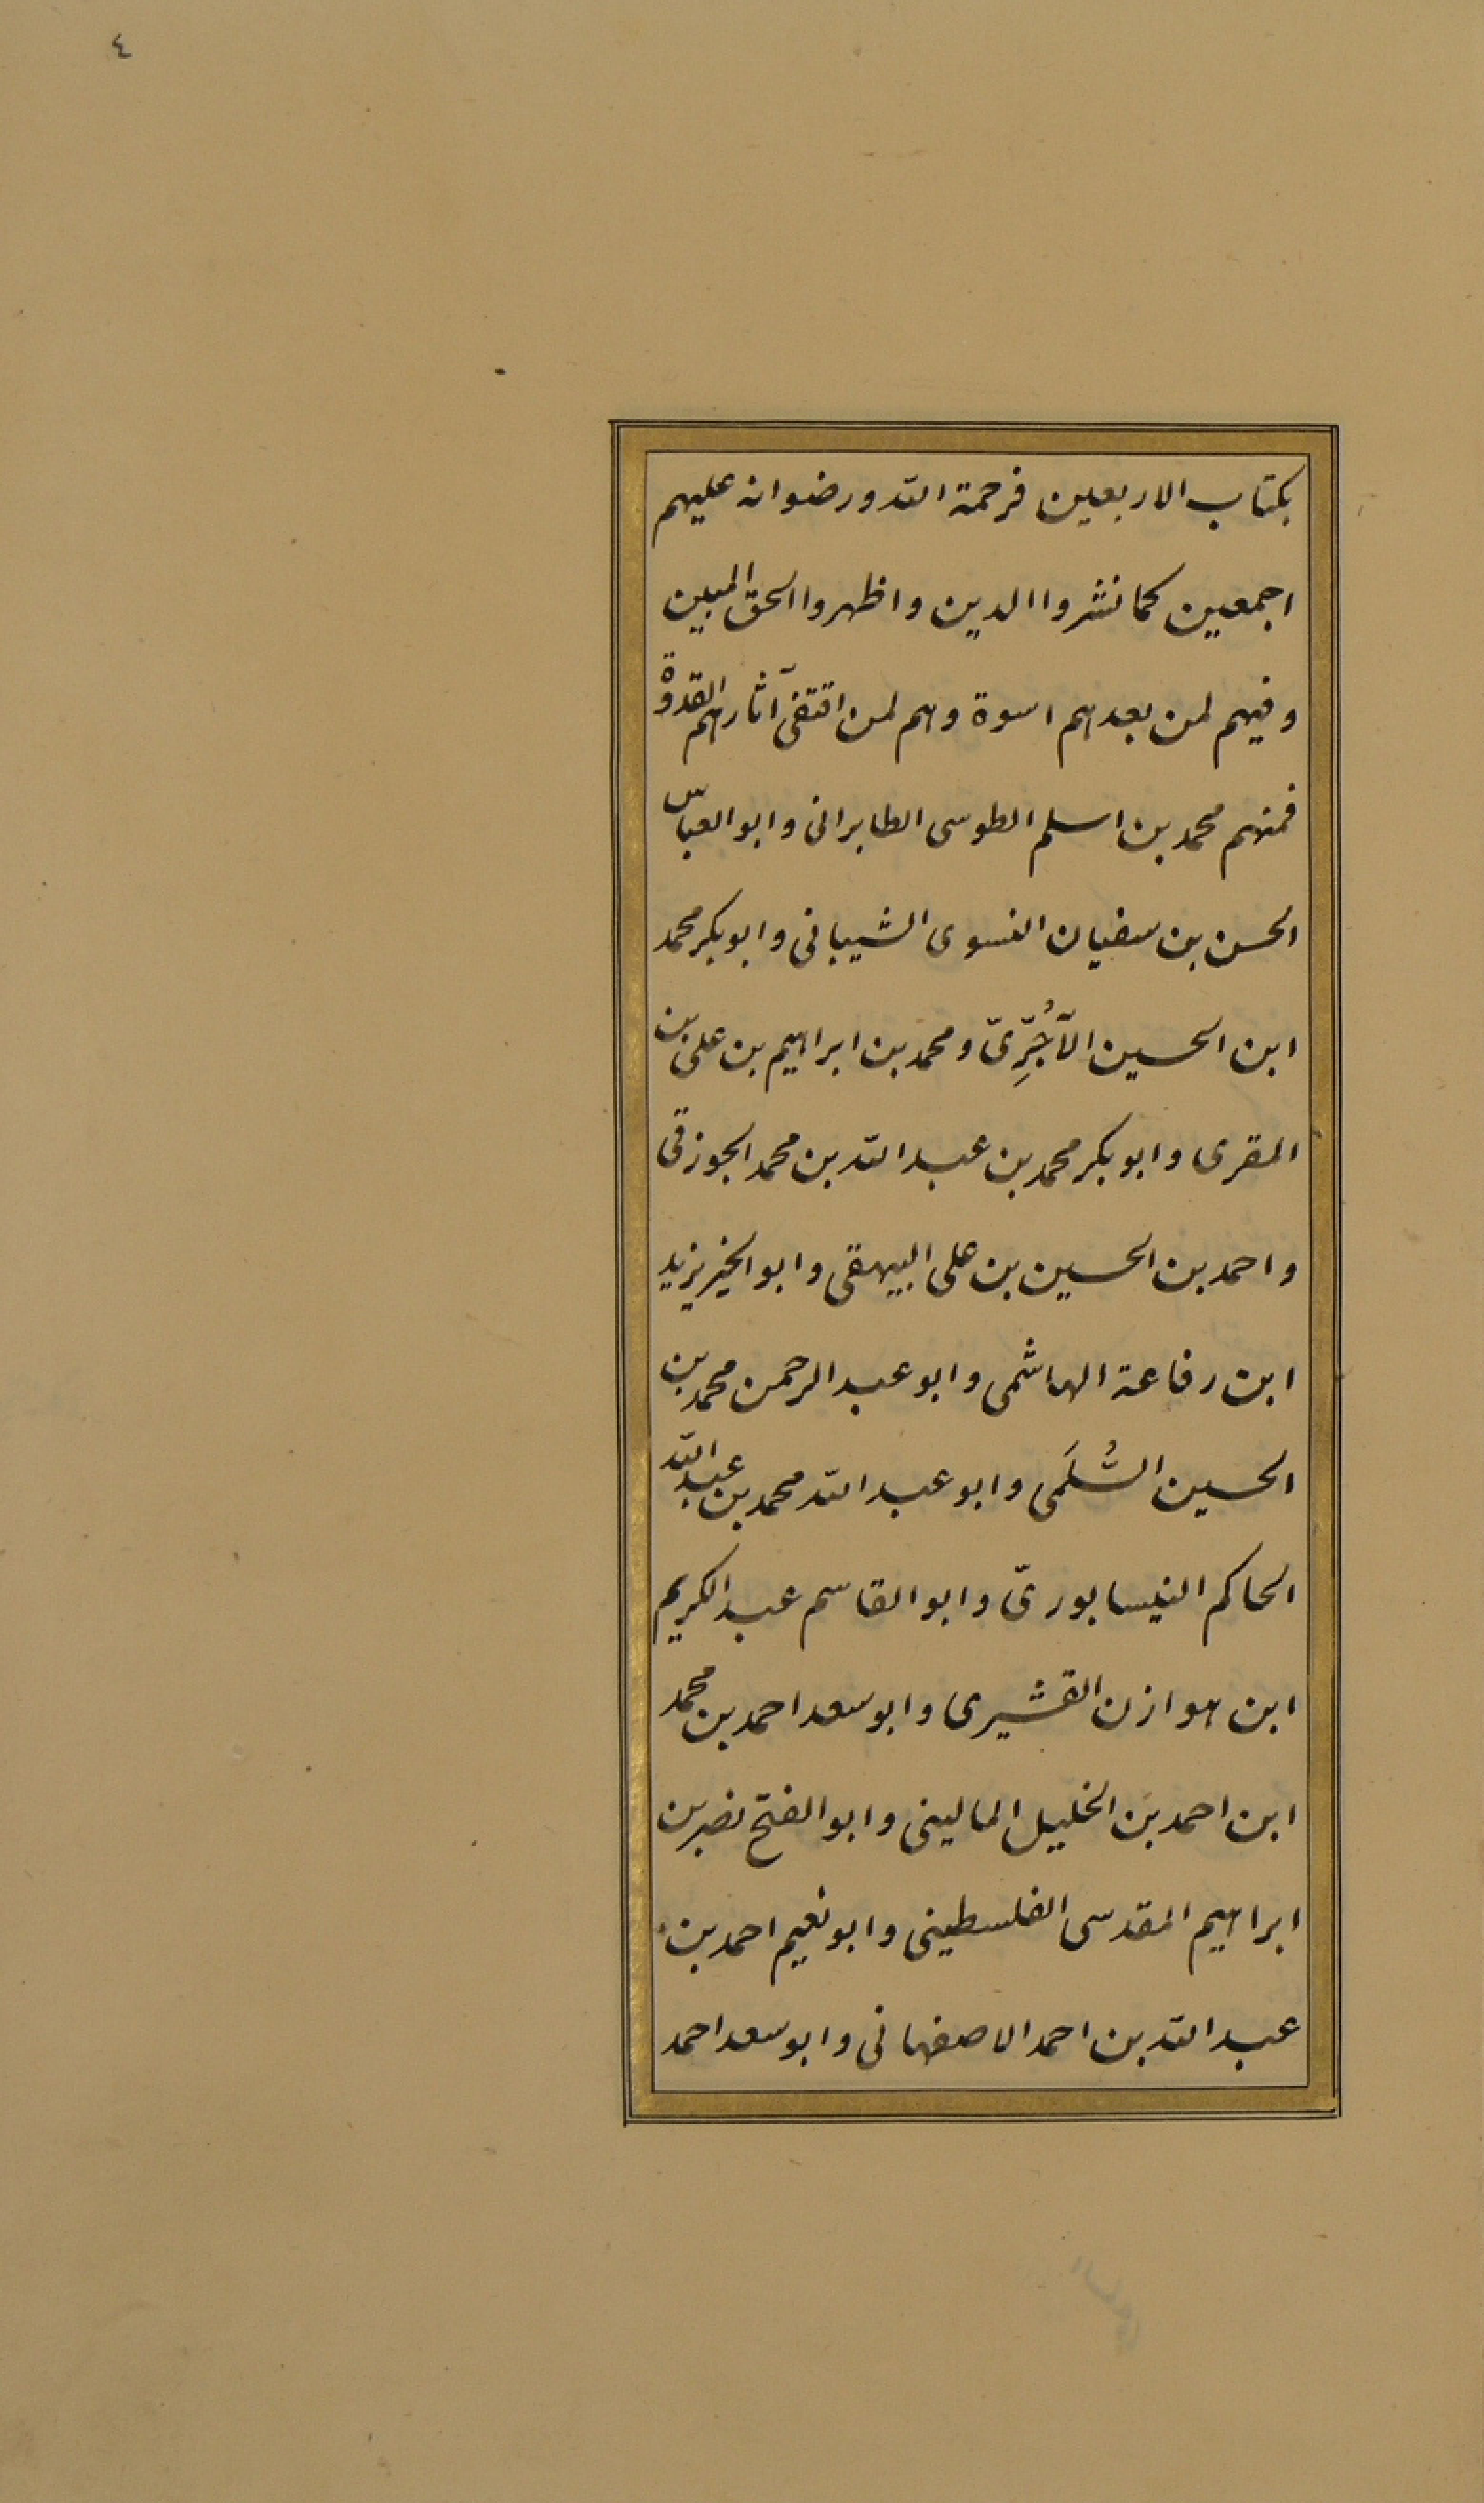 ٤
بكتاب الاربعين فرحمة الله ورضوانه عليهم
اجمعين كما نشروا الدين واظهروا الحق المبين
وفيهم لمن بعدهم اسوة وهم لمن اقتفى آثارهم القدوة
فمنهم محمد بن اسلم الطوسى الطابرانى وابو العباس
الحسن بن سفيان النسوى الشيبانى وابو بكر محمد
ابن الحسين الآجُرِّىّ ومحمد بن ابراهيم بن على بن
المقرى وابو بكر محمد بن عبد الله بن محمد الجوزقى
واحمد بن الحسين بن على البيهقى وابو الخير يزيد
ابن رفاعة الهاشمى وابو عبد الرحمن محمد بن
الحسين السُّلَمى وابو عبد الله محمد بن عبد الله
الحاكم النيسابورىّ وابو القاسم عبد الكريم
ابن هوازن القشيرى وابو سعد احمد بن محمد
ابن احمد بن الخليل المالينى وابو الفتح نصر بن
ابراهيم المقدسى الفلسطينى وابو نعيم احمد بن
عبد الله بن احمد الاصفهانى وابو سعد احمد